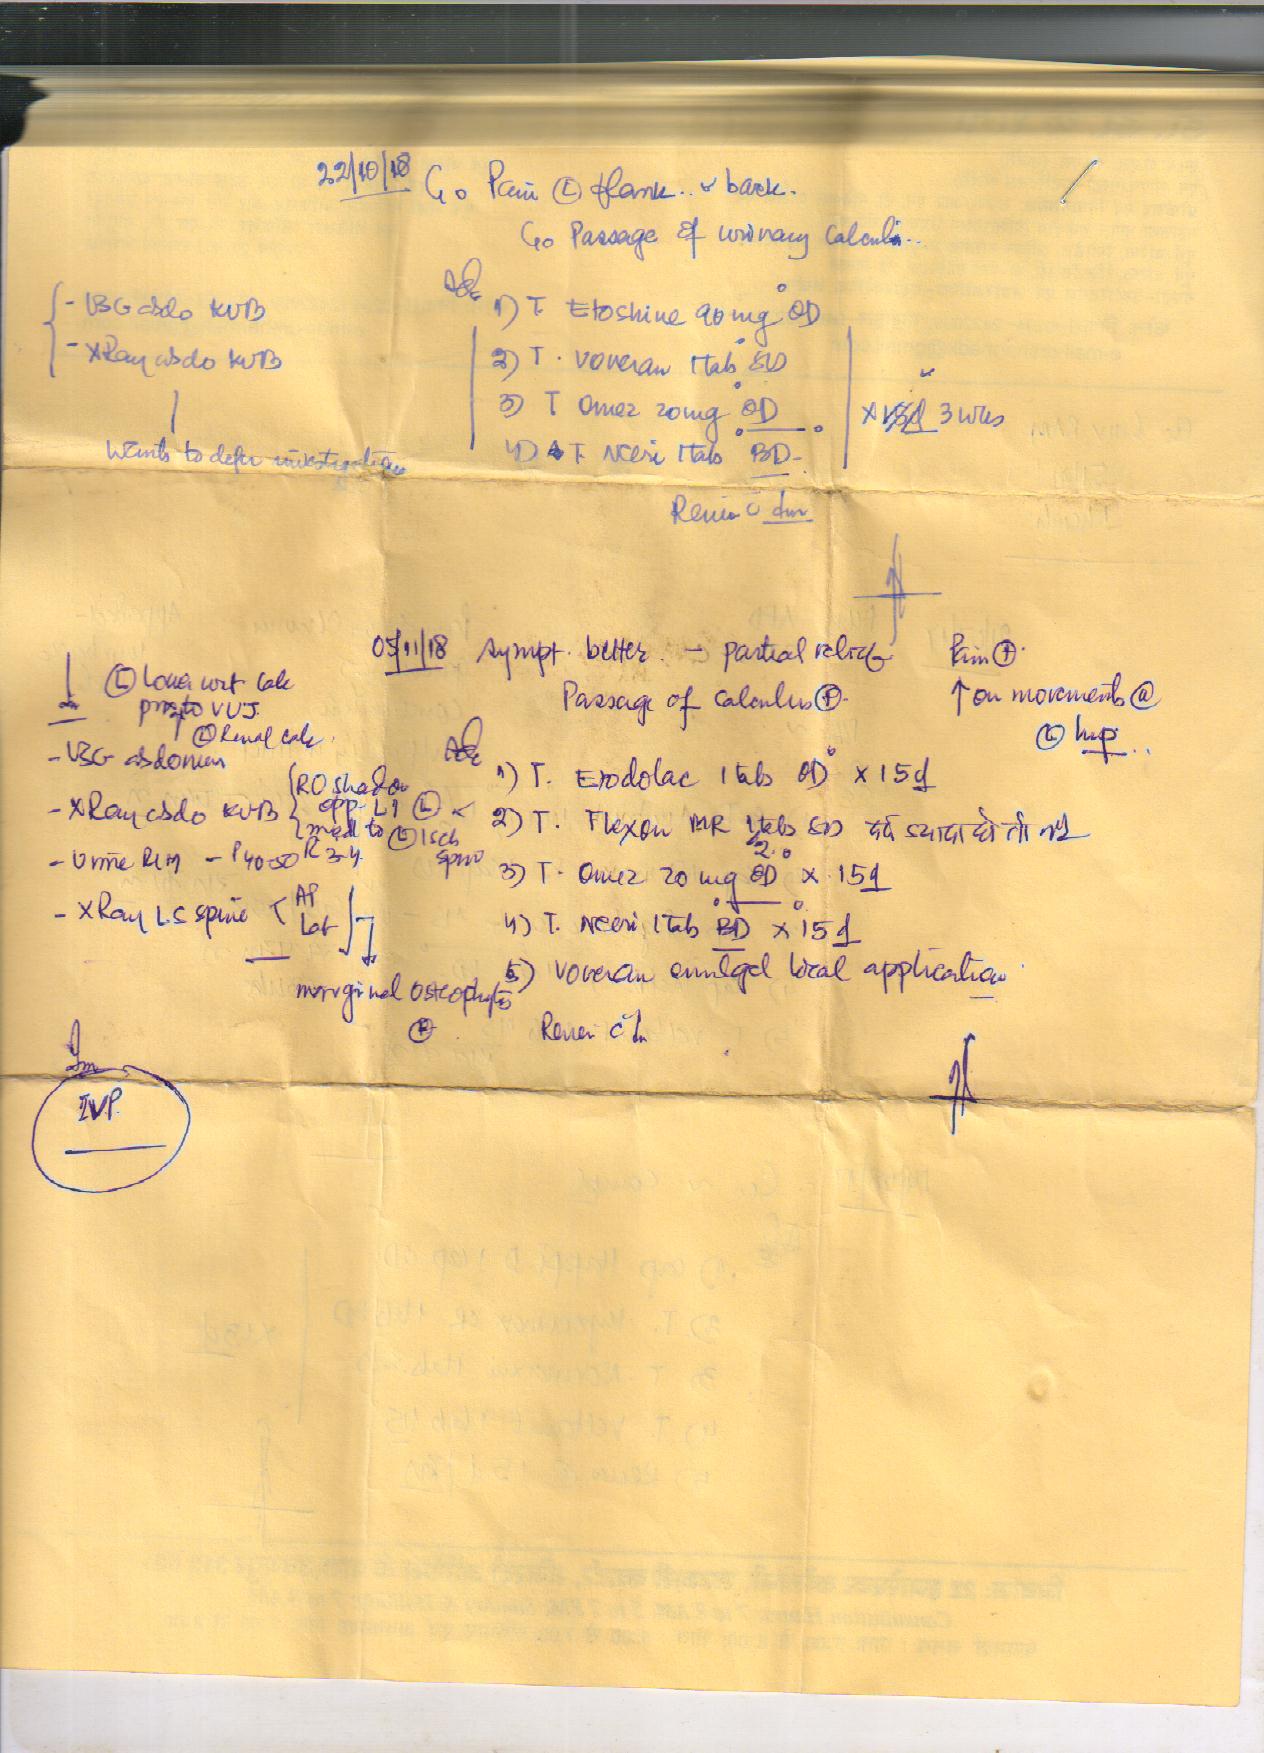 22/10/18 C/o Pain Ⓛ flank.. & back.
C/o Passage of urinary calculi..
Adv
- USG abdo KUB
- XRay abdo KUB
Wants to defer investigation
1) T. Etoshine 90mg OD
2) T. Voveran 1tab SD
3) T Omez 20mg OD
4) T. Neeri 1tab BD
x 3 wks
Review c̄
05/11/18 Sympt. better. → partial relief Pain ⊕.
Passage of calculus ⊕. ↑ on movements @
Ⓛ hip..
Ⓛ Lower urt calc
prox to VUJ.
Ⓛ Renal calc.
- USG abdomen
- XRay abdo KUB { RO shadow
opp. L1 Ⓛ <
med to Ⓛ Isch
spine
- Urine R/M - P40-50 R 3-4
- XRay LS spine < AP
Lat
marginal osteophytes
⊕
Adv
1) T. Etodolac 1tab OD x 15d
2) T. Flexon MR 1tab SOS दर्द ज्यादा हो तो
3) T. Omez 20mg OD x 15d
4) T. Neeri 1tab BD x 15d
5) Voveran emulgel local application
Review c̄
IVP.